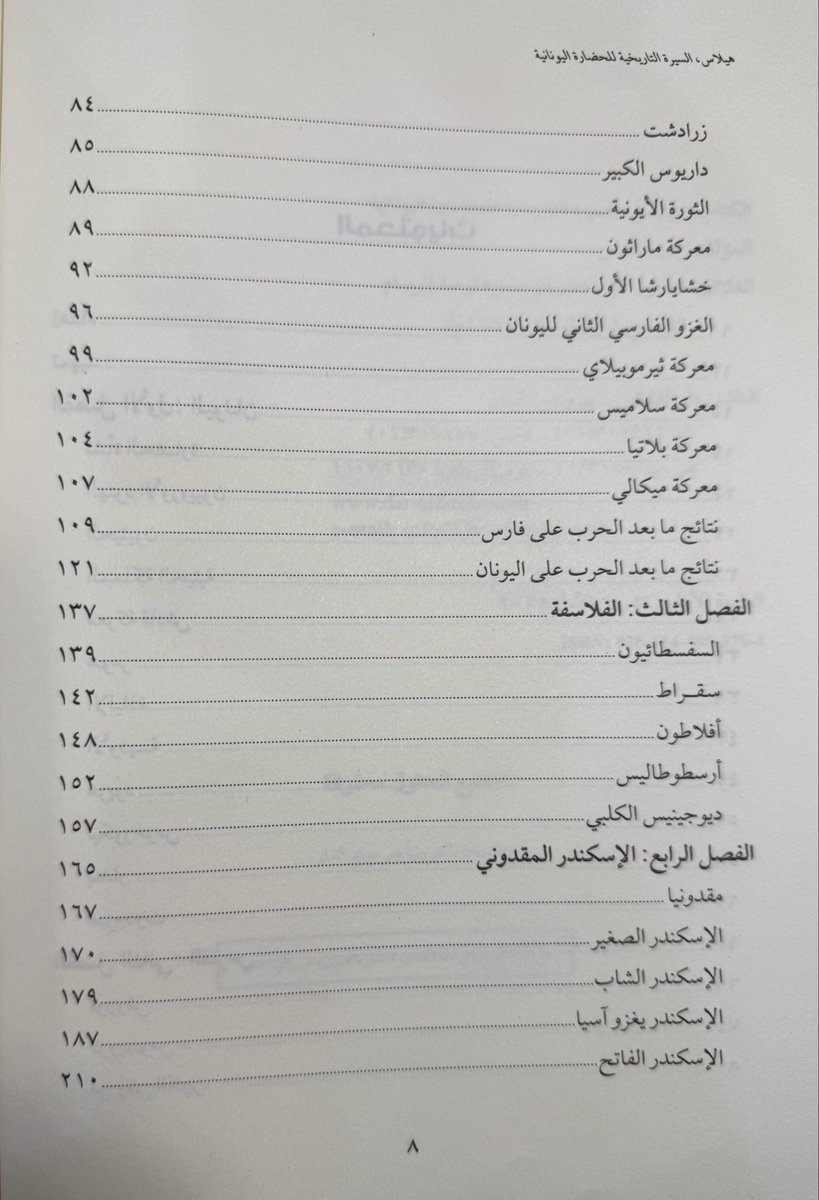 هيلاس، السيرة التاريخية للحضارة اليونانية
زرادشت ٨٤
داريوس الكبير ٨٥
الثورة الأيونية ٨٨
معركة ماراثون ٨٩
خشايارشا الأول ٩٢
الغزو الفارسي الثاني لليونان ٩٦
معركة ثيرموبيلاي ٩٩
معركة سلاميس ١٠٢
معركة بلاتيا ١٠٤
معركة ميكالي ١٠٧
نتائج ما بعد الحرب على فارس ١٠٩
نتائج ما بعد الحرب على اليونان ١٢١
الفصل الثالث: الفلاسفة ١٣٧
السفسطائيون ١٣٩
سقــراط ١٤٢
أفلاطون ١٤٨
أرسطوطاليس ١٥٢
ديوجينيس الكلبي ١٥٧
الفصل الرابع: الإسكندر المقدوني ١٦٥
مقدونيا ١٦٧
الإسكندر الصغير ١٧٠
الإسكندر الشاب ١٧٩
الإسكندر يغزو آسيا ١٨٧
الإسكندر الفاتح ٢١٠
٨